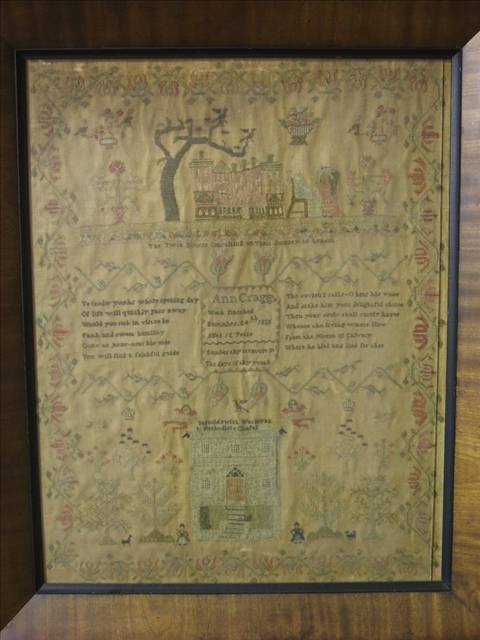 The Twelve Months Consulting on Their Journey to
Ann Cragg,
Work finished
December 24th
Aged 12 Years
Remember thy creator in
The days of thy youth
Ye tender youths whose opening day
Of life will quickly pass away
Would you rich in virtue be
Faith and sweet humility
Come to now his side
You will find a faithful guide
The saviour calls O hear his voice
And make him your delightful choice
Then your souls shall surely know
Whence the living waters flow
From the Mount of Calvary
Where he bled and died for thee
Wesleyan
Methodist Chapel